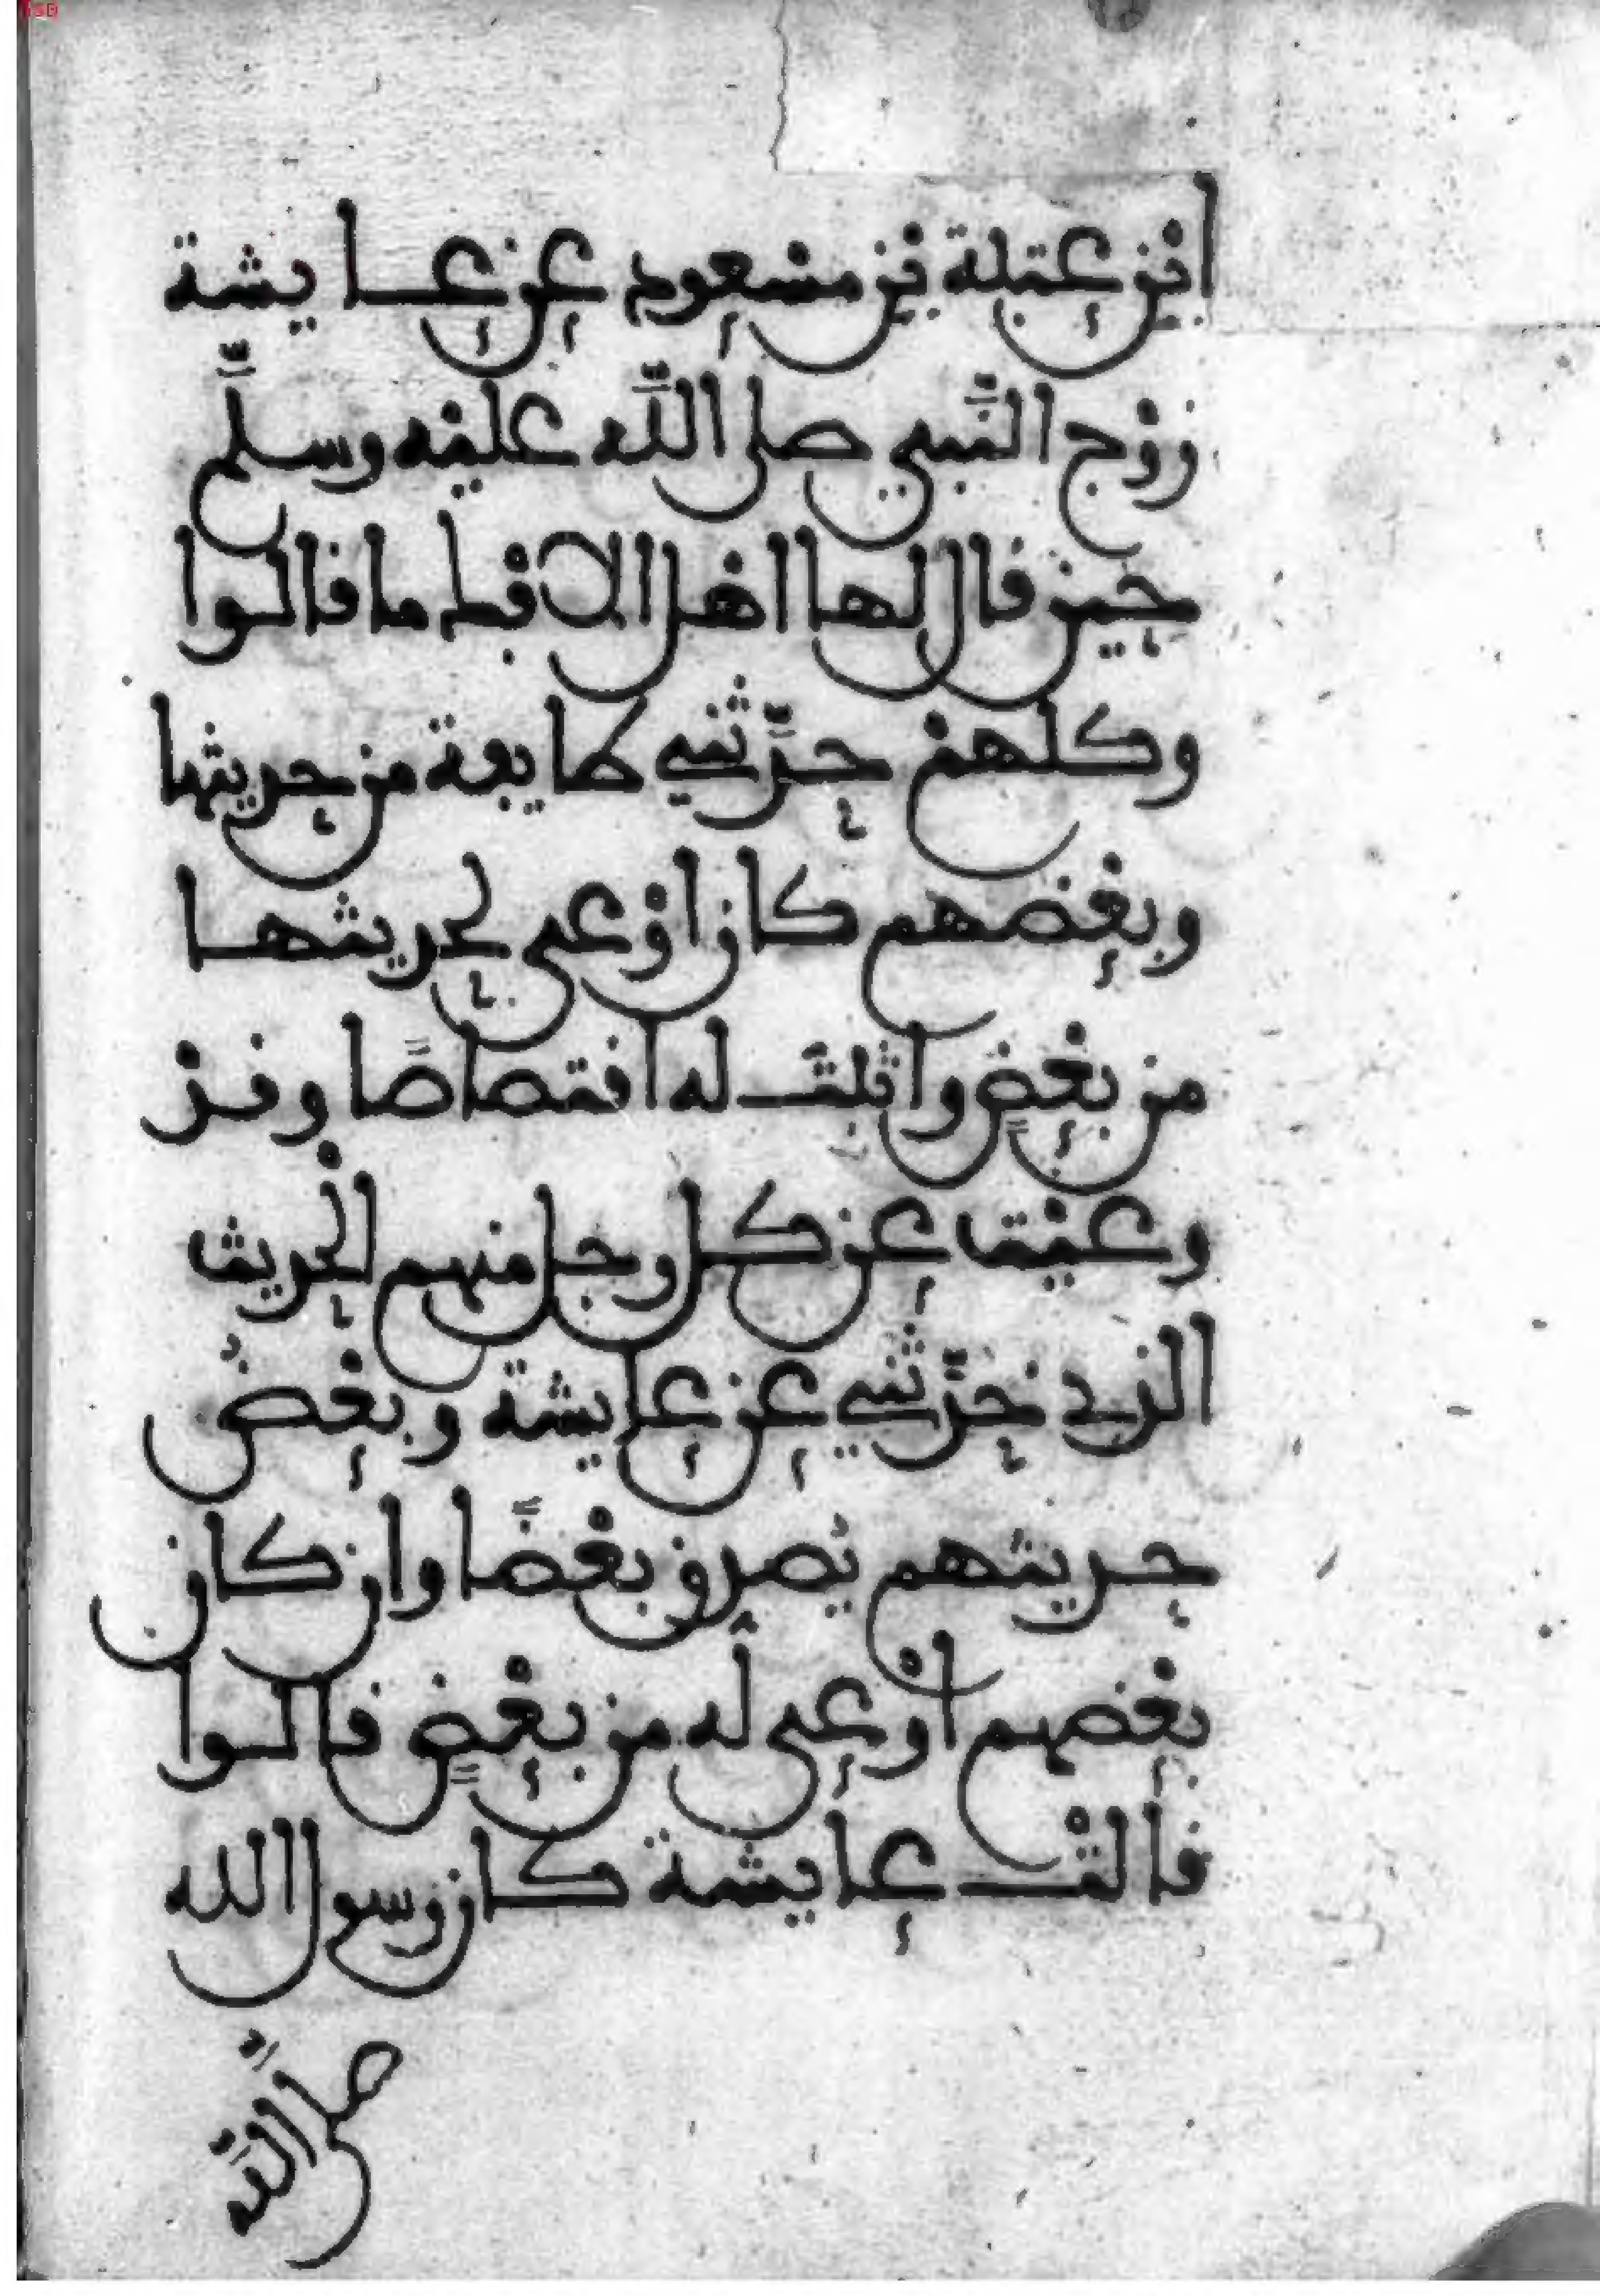 ابن عتبة بن مسعود عن عايشة
زوج النبي صلى الله عليه وسلم
حين قال لها اهل الافك ما قالوا
وكلهم حدثني طايفة من حديثها
وبعضهم كان اوعى لحديثها
من بعض واثبت له اقتصاصا وقد
وعيت عن كل رجل منهم الحديث
الذي حدثني عن عايشة وبعض
حديثهم يصدق بعضا وان كان
بعضهم اوعى له من بعض قالوا
قالت عايشة كان رسول الله
صلى الله